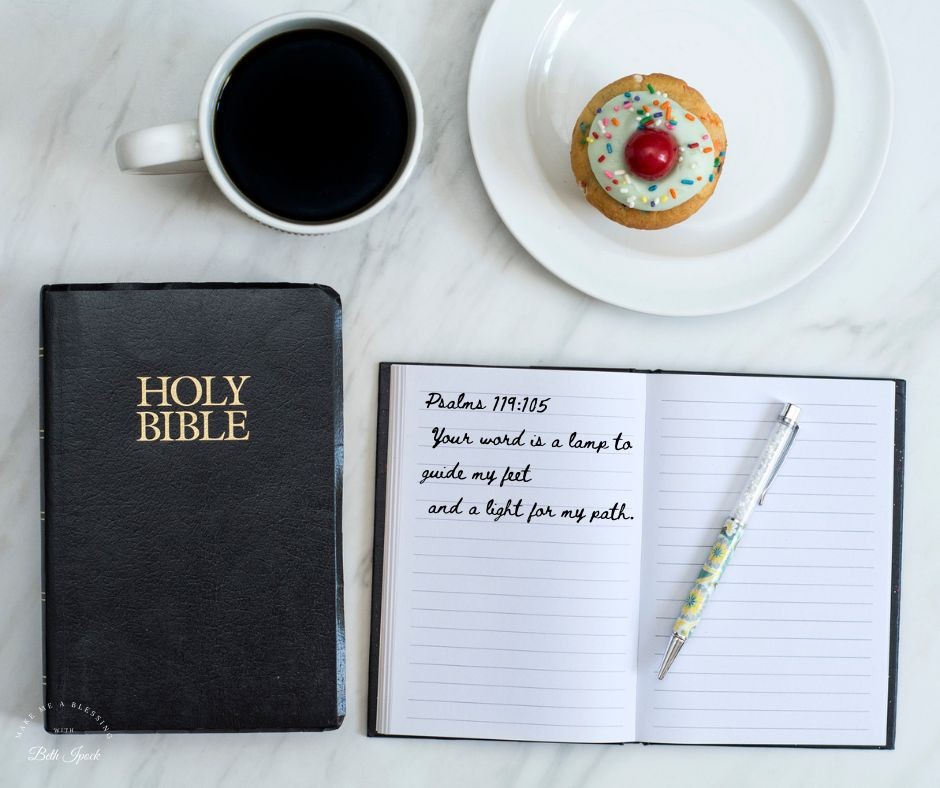 HOLY
BIBLE
Psalms 119:105
Your word is a lamp to
guide my feet
and a light for my path.
MAKE ME A BLESSING
WITH
Beth Ipock